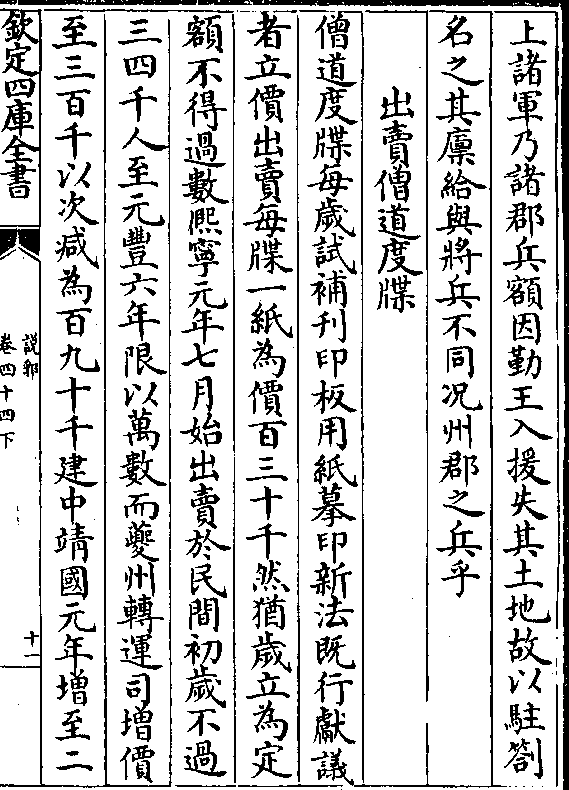 上諸軍乃諸郡兵額因勤王入援失其土地故以駐劄
名之其廩給與將兵不同况州郡之兵乎
出賣僧道度牒
僧道度牒每歲試補刊印板用紙摹印新法既行獻議
者立價出賣每牒一紙為價百三十千然猶歲立為定
額不得過數熙寧元年七月始出賣於民間初歲不過
三四千人至元豐六年限以萬數而夔州轉運司增價
至三百千以次減為百九十千建中靖國元年增至二
欽定四庫全書
說郛
卷四十四下
十一